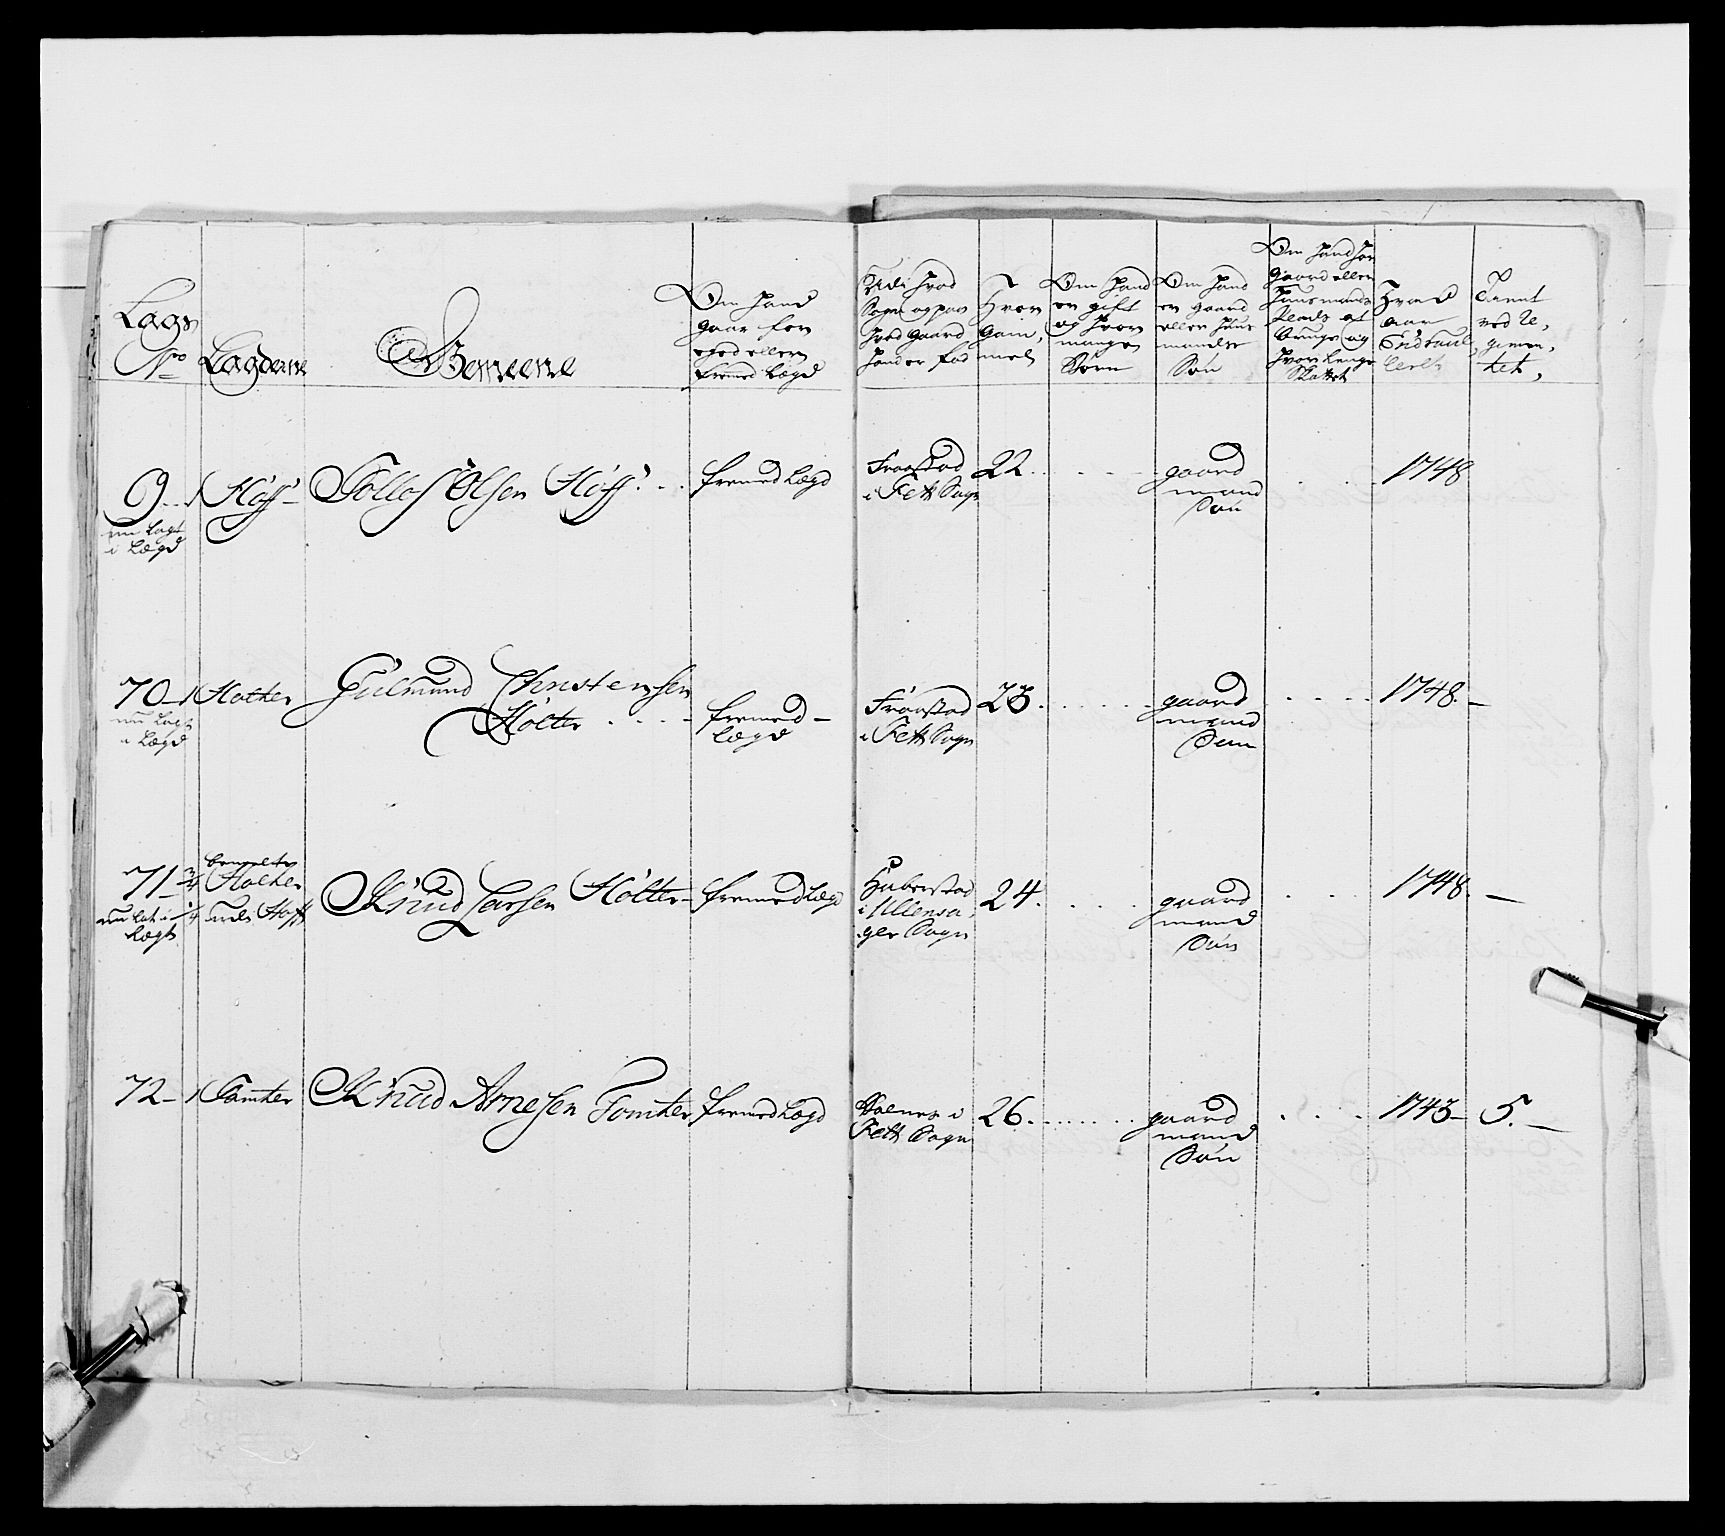 Lags No
Lagderne
Gemeene
Om hand gaar for eged eller fremed Lægd
Udi hvad Sogn og paa hvad Gaard hand er fød
Hvor Gammel
Om hand er gift og hvor mange Børn
Om hand er gaard eller huusmands Søn
Om hand har gaard eller huusmands Plads at bruge og hvor lenge
Hvad aar Enroulleret
Tient ved Regimentet,
9 1 Hoff Tollof Olsen Hoff fremed Lægd Fraastad i Fett Sogn 22 gaard mand Søn 1748
nu Lagt i Lægd
70 1 Holter Gulmund Christensen Holter fremed Lægd Fraastad i Fett Sogn 23 gaard mand Søn 1748
nu Lagt i Lægd
71 3/4 Holter Knud Larsen Holter fremed Lægd i Ullensager Sogn 24 gaard mand Søn 1748
1/4 Hoff
72 1 Tomter Knud Arnesen Tomter fremed Lægd i Fett Sogn 26 gaard mand Søn 1743 5